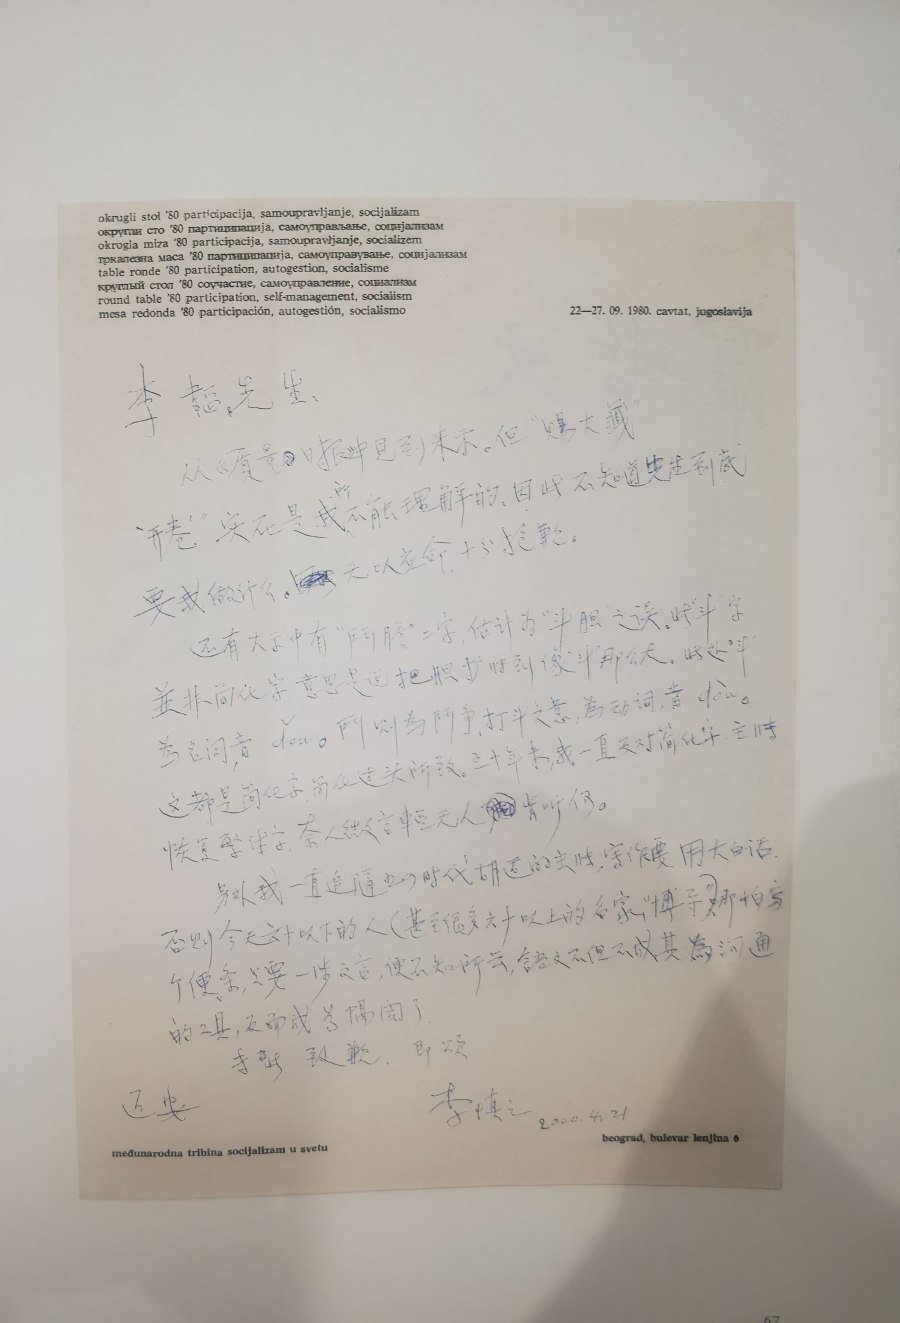 okrugli stol '80 participacija, samoupravljanje, socijalizam
округли сто '80 партиципација, самоуправљање, социјализам
okrogla miza '80 participacija, samoupravljanje, socializem
тркалезна маса '80 партиципација, самоуправување, социјализам
table ronde '80 participation, autogestion, socialisme
круглый стол '80 соучастие, самоуправление, социализм
round table '80 participation, self-management, socialism
mesa redonda '80 participación, autogestión, socialismo
22—27. 09. 1980. cavtat, jugoslavija
李韬先生、
从《质量日报》中见到来示。但"赐大籤"
"开卷"实在是我所不能理解的,因此不知道先生到底
要我做什么。无以应命,十分抱歉。
还有大示中有"鬥膽"二字,估计为"斗胆"之误。此"斗"字
並非简化字,意思是说把胆扩大到像斗那么大。此处"斗"
為名词,音dǒu。鬥则為鬥争,打斗之意,為动词,音dòu。
这都是简化字简化过头所致。五十年来,我一直反对简化字,主张
恢复繁体字,奈人微言輕无人肯听何。
另外我一直追随五四时代胡适的主张,写作要用大白话,
否则今天六十以下的人(甚至很多六十以上的名家,"博导")那怕写
个便条,只要一涉文言,便不知所云,語文不但不成其為沟通
的工具,反而成为隔阂了。
专此致歉,即颂
近安
李慎之 2000.4.21
međunarodna tribina socijalizam u svetu
beograd, bulevar lenjina 6
62